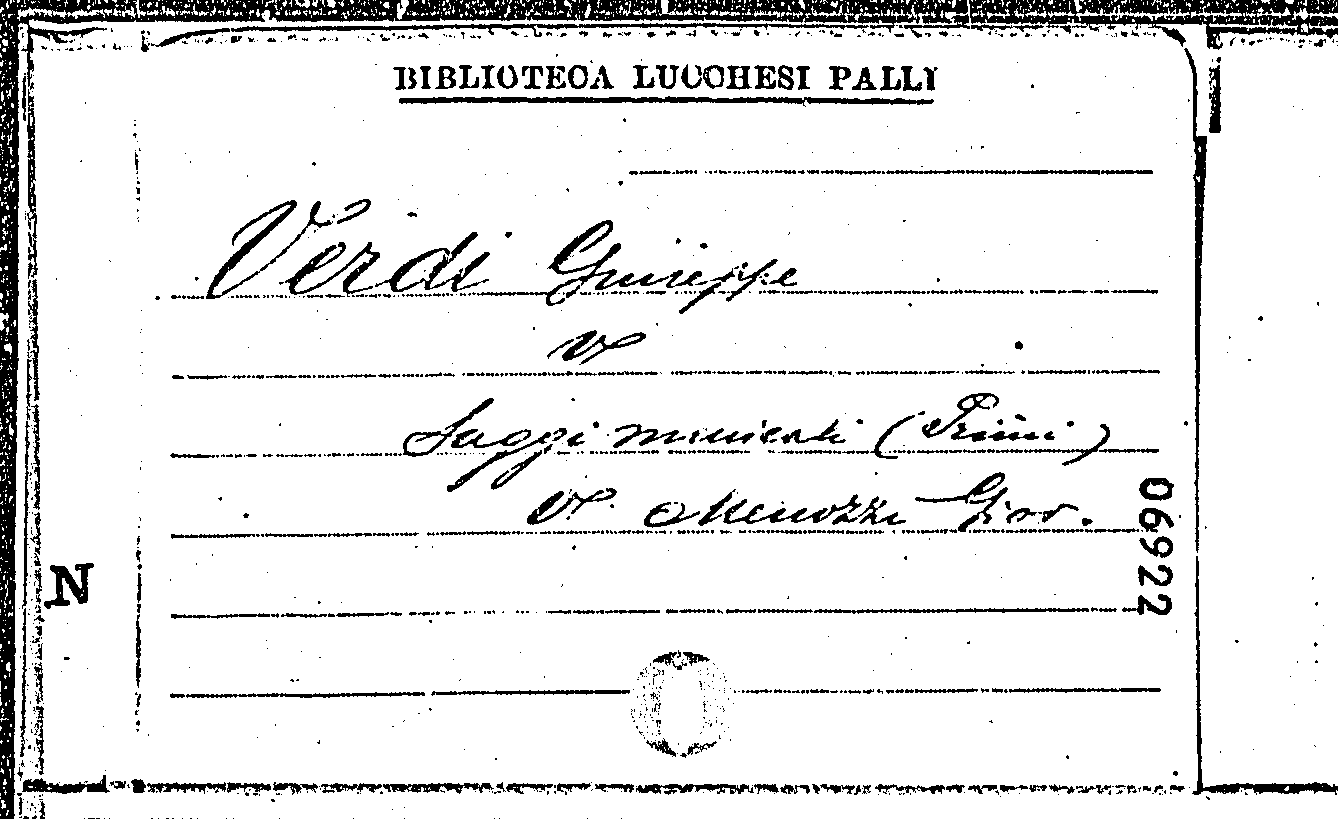 BIBLIOTECA LUCCHESI PALLI
Verdi Giuseppe
V.
Saggi musicali (Primi)
V. Menozzi Giov.
06922
N